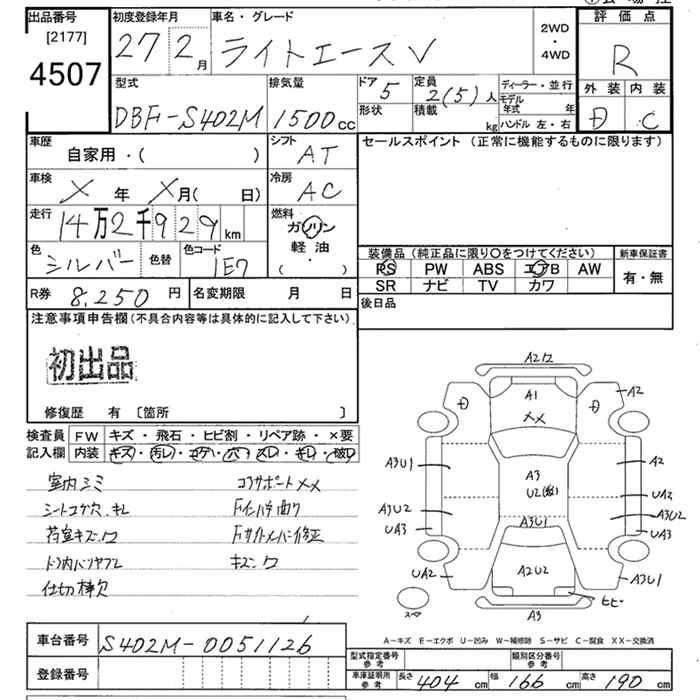 出品番号
[2177]
4507
初度登録年月
27 2月
車名・グレード
ライトエースV
2WD
・
4WD
評価点
R
外装 内装
D C
型式
DBF-S402M
排気量
1500cc
ドア 5
形状
定員 2(5)人
積載 kg
ディーラー・並行
モデル年式 年
ハンドル 左・右
車歴
自家用・( )
シフト
AT
車検
X年 X月( 日)
冷房
AC
走行
14万2千929km
燃料
ガソリン
軽油
( )
色
シルバー
色替
色コード
1E7
R券 8,250円
名変期限 月 日
セールスポイント (正常に機能するものに限ります)
装備品(純正品に限り○をつけてください)
PS PW ABS エアB AW
SR ナビ TV カワ
新車保証書
有・無
後日品
注意事項申告欄(不具合内容等は具体的に記入して下さい)
初出品
修復歴 有 〔箇所 〕
検査員記入欄
FW キズ・飛石・ヒビ割・リペア跡・×要
内装 キズ・汚レ・コゲ・穴・スレ・キレ・破レ
室内シミ
シートコゲ穴、キレ
荷室キズ、ワ
ドア内バリヤブレ
仕切棒欠
コアサポートXX
Fインパネ曲り
Fサイドメンバー修正
キズ、ワ
A2ワ
A1
XX
D
D
A2
A3U1
A3
U2
A2
A3U2
UA2
A3U2
UA3
UA3
A3U1
UA2
A2U2
A3U1
ヒビ
A3
スペア
A-キズ E-エクボ U-凹み W-補修跡 S-サビ C-腐食 XX-交換済
車台番号 S402M-0051126
登録番号
型式指定番号 参考
類別区分番号 参考
車庫証明用 参考 長さ 404cm 幅 166cm 高さ 190cm